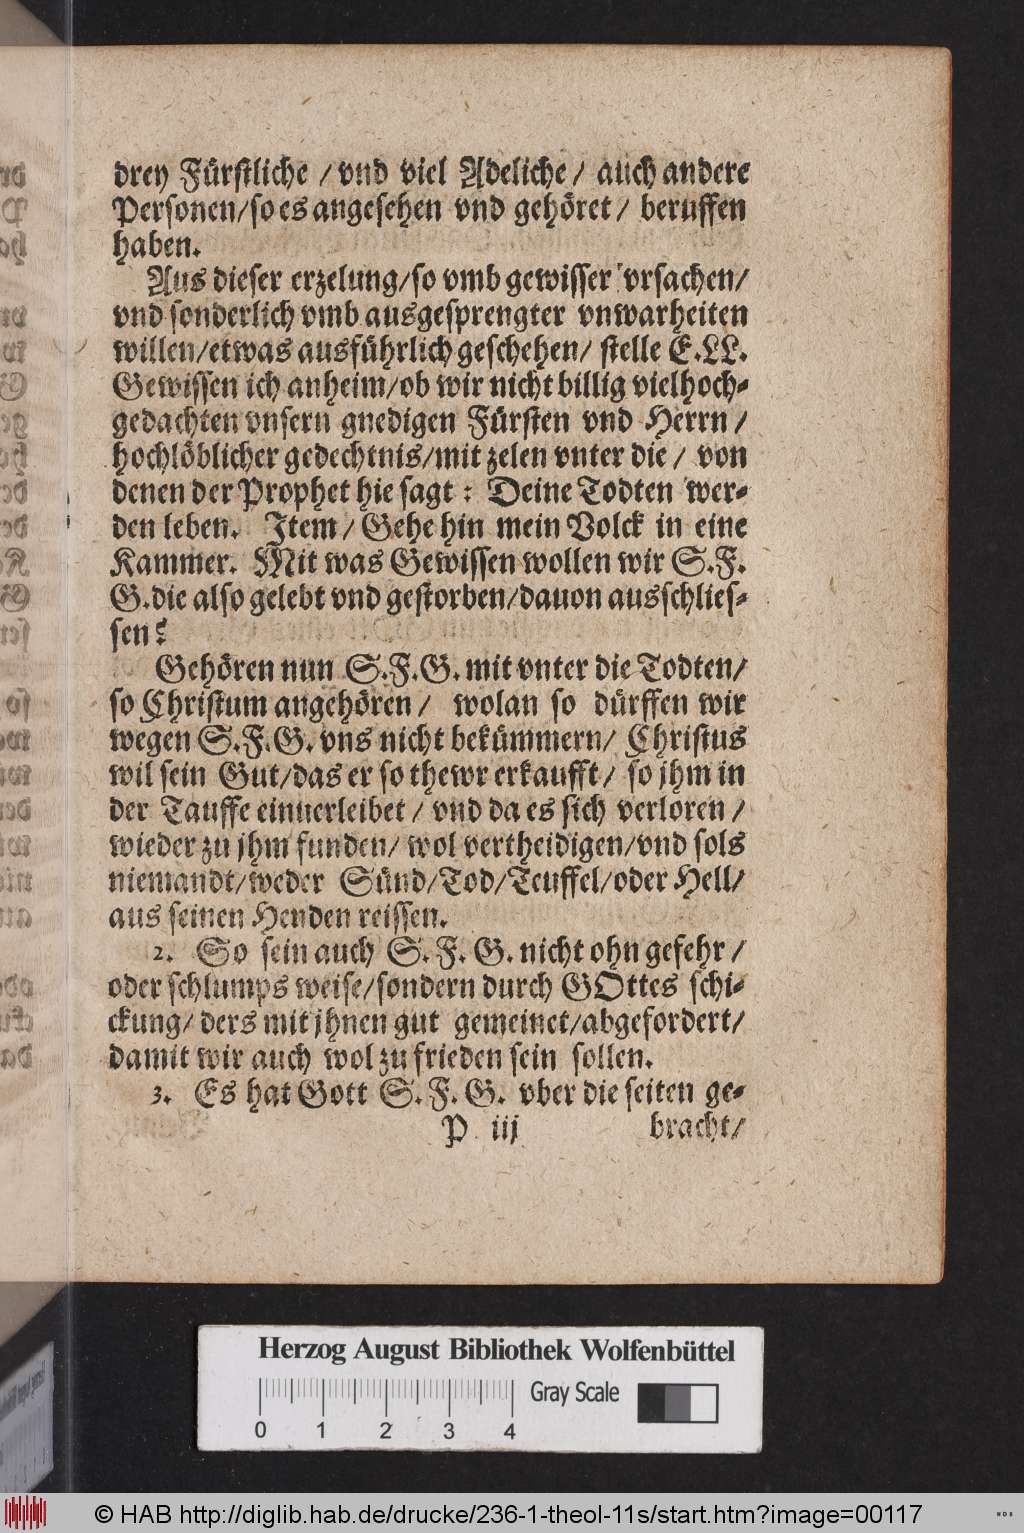 drey Fürstliche / vnd viel Adeliche / auch andere
Personen/so es angesehen vnd gehöret / beruffen
haben.
Aus dieser erzelung/so vmb gewisser vrsachen/
vnd sonderlich vmb ausgesprengter vnwarheiten
willen/etwas ausführlich geschehen/ stelle E.LL.
Gewissen ich anheim/ob wir nicht billig vielhoch-
gedachten vnsern gnedigen Fürsten vnd Herrn /
hochlöblicher gedechtnis/mit zelen vnter die / von
denen der Prophet hie sagt : Deine Todten wer-
den leben. Item / Gehe hin mein Volck in eine
Kammer. Mit was Gewissen wollen wir S.F.
G.die also gelebt vnd gestorben/dauon ausschlies-
sen?
Gehören nun S.F.G. mit vnter die Todten/
so Christum angehören / wolan so dürffen wir
wegen S.F.G. vns nicht bekümmern/ Christus
wil sein Gut/das er so thewr erkaufft / so jhm in
der Tauffe einuerleibet / vnd da es sich verloren /
wieder zu jhm funden/ wol vertheidigen/vnd sols
niemandt/weder Sünd/Tod/Teuffel/oder Hell/
aus seinen Henden reissen.
2. So sein auch S. F. G. nicht ohn gefehr /
oder schlumps weise/sondern durch GOttes schi-
ckung/ ders mit jhnen gut gemeinet/abgefordert/
damit wir auch wol zu frieden sein sollen.
3. Es hat Gott S. F. G. vber die seiten ge-
P iij bracht/
Herzog August Bibliothek Wolfenbüttel
Gray Scale
0 1 2 3 4
© HAB http://diglib.hab.de/drucke/236-1-theol-11s/start.htm?image=00117